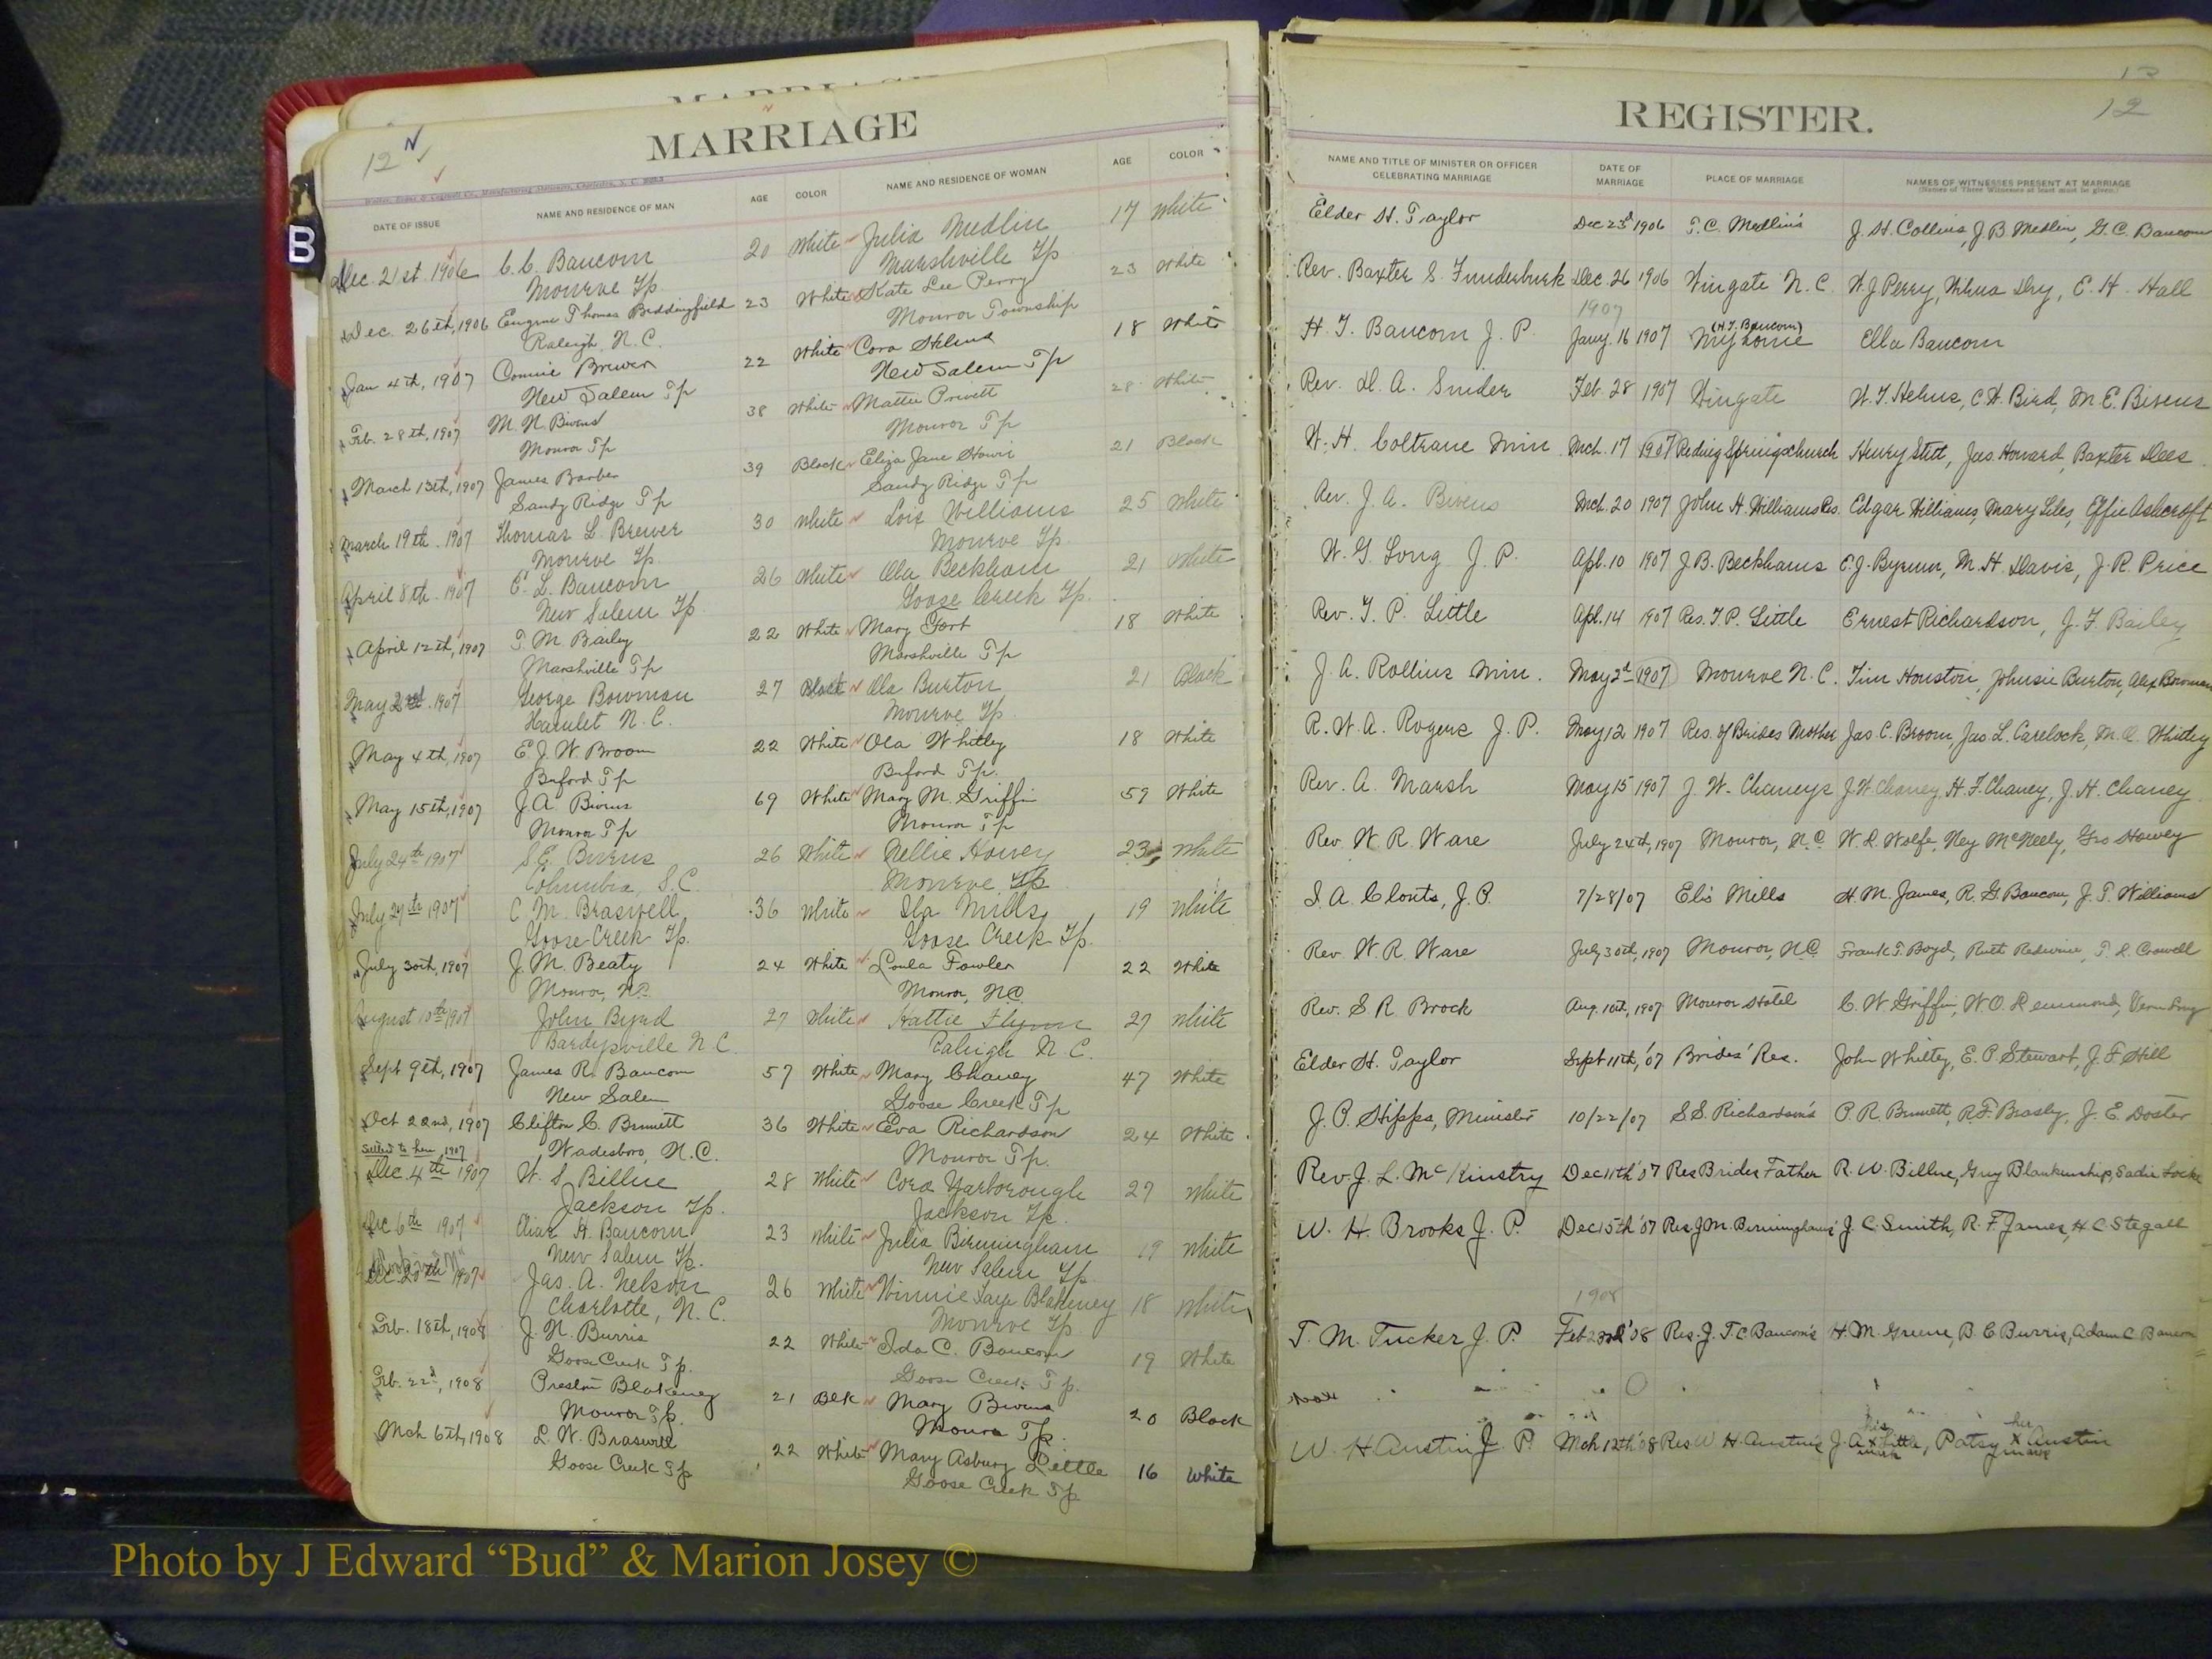 MARRIAGE
12 N
DATE OF ISSUE NAME AND RESIDENCE OF MAN AGE COLOR NAME AND RESIDENCE OF WOMAN AGE COLOR
Dec. 21st. 1906 C. C. Baucom 20 White Julia Medlin 17 White
Monroe Tp. Marshville Tp
Dec. 26th, 1906 Eugene Thomas Beddingfield 23 White Kate Lee Perry 23 White
Raleigh, N.C. Monroe Township
Jan 4th, 1907 Connie Brewer 22 White Cora Helms 18 White
New Salem Tp New Salem Tp
Feb. 28th, 1907 M. N. Bivens 38 White Mattie Privett 28 White
Monroe Tp Monroe Tp
March 13th, 1907 James Barber 39 Black Eliza Jane 21 Black
Sandy Ridge Tp Sandy Ridge Tp
March 19th. 1907 Thomas L. Brewer 30 White Lois Williams 25 White
Monroe Tp. Monroe Tp.
April 8th. 1907 E. L. Baucom 26 White Ola Beckham 21 White
New Salem Tp. Goose Creek Tp.
April 12th, 1907 T. M. Bailey 22 White Mary 18 White
Marshville Tp Marshville Tp
May 2nd. 1907 George Bowman 27 Black Ola Burton 21 Black
Hamlet N.C. Monroe Tp.
May 4th, 1907 E. J. W. Broom 22 White Ola Whitley 18 White
Buford Tp Buford Tp.
May 15th, 1907 J. A. Bivens 69 White Mary M. Griffin 59 White
Monroe Tp Monroe Tp
July 24th 1907 S. E. Bivens 26 White Nellie Howey 23 White
Columbia, S.C. Monroe Tp
July 27th 1907 C. M. Braswell 36 White Ila Mills 19 White
Goose Creek Tp. Goose Creek Tp.
July 30th, 1907 J. M. Beaty 24 White Loula Fowler 22 White
Monroe, N.C. Monroe, N.C.
August 10th 1907 John Byrd 27 White Hattie Flynn 27 White
N.C. Raleigh N.C.
Sept 9th, 1907 James R. Baucom 57 White Mary Chaney 47 White
New Salem Goose Creek Tp
Oct 22nd, 1907 Clifton C. Bennett 36 White Eva Richardson 24 White
Wadesboro, N.C. Monroe Tp.
Dec 4th 1907 W. S. Billue 28 White Cora Yarborough 27 White
Jackson Tp. Jackson Tp.
Dec 6th 1907 H. Baucom 23 White Julia Birmingham 19 White
New Salem Tp. New Salem Tp.
Dec 20th 1907 Jas. A. Nelson 26 White Winnie Faye Blakeney 18 White
Charlotte, N.C. Monroe Tp
Feb. 18th, 1908 J. N. Burris 22 White Ida C. Baucom 19 White
Goose Creek Tp. Goose Creek Tp.
Feb. 22d, 1908 Preston Blakeney 21 Blk Mary Bivens 20 Black
Monroe Tp. Monroe Tp.
Mch 6th, 1908 L. W. Braswell 22 White Mary Asbury Little 16 White
Goose Creek Tp Goose Creek Tp
B
REGISTER.
12
NAME AND TITLE OF MINISTER OR OFFICER CELEBRATING MARRIAGE DATE OF MARRIAGE PLACE OF MARRIAGE NAMES OF WITNESSES PRESENT AT MARRIAGE
(Names of Three Witnesses at least must be given.)
Elder H. Taylor Dec 23d 1906 T. C. Medlin's J. H. Collins, J. B Medlin, G. C. Baucom
Rev. Baxter S. Funderburk Dec. 26 1906 Wingate N.C. W. J Perry, E. H. Hall
1907
H. T. Baucom J. P. Jany. 16 1907 My home (H.T. Baucom) Ella Baucom
Rev. D. A. Snider Feb. 28 1907 Wingate W. T. Helms, C. W. Bird, M. E. Bivens
W. H. Coltrane Min. Mch. 17 1907 Reding Springs church Henry Stitt, Jas Howard, Baxter Dees
Rev. J. A. Bivens Mch. 20 1907 John H. Williams Res. Edgar Williams, Mary Liles, Effie Ashcroft
W. G Long J. P. Apl. 10 1907 J. B. Beckhams E. J. Byrum, M. H. Davis, J. R. Price
Rev. T. P. Little Apl. 14 1907 Res. T. P. Little Ernest Richardson, J. F. Bailey
J. A. Rollins Min. May 2d 1907 Monroe N.C. Tim Houston, Johnsie Burton, Alex Bowman
R. W. A. Rogers J. P. May 12 1907 Res. of Brides Mother Jas. C. Broom, Jas. L. Carelock, M. A. Whitley
Rev. A. Marsh May 15 1907 J. W. Chaneys J. W. Chaney, H. F. Chaney, J. H. Chaney
Rev. W. R. Ware July 24th, 1907 Monroe, N.C. W. R. Wolfe, Ney McNeely, Geo Howey
S. A. Clonts, J. P. 7/28/07 Eli Mills H. M. James, R. G. Baucom, J. T. Williams
Rev. W. R. Ware July 30th, 1907 Monroe, N.C. Frank T. Boyd, Ruth Redwine, T. L. Crowell
Rev. S. R. Brock Aug. 10th, 1907 Monroe Hotel C. W. Griffin, W. O. Lemmond, Vern Long
Elder H. Taylor Sept 11th, '07 Brides' Res. John Whitley, E. P. Stewart, J. F. Hill
J. P. Hipps, Minister 10/22/07 S. S. Richardson's P. R. Bennett, R. F. Beasley, J. E. Doster
Rev. J. L. McKinstry Dec 11th '07 Res Brides Father R. W. Billue, Guy Blankenship, Sadie Locke
W. H. Brooks J. P. Dec 15th '07 Res J. M. Birmingham's J. C. Smith, R. F. James, H. C. Stegall
1908
T. M. Tucker J. P. Feb 23rd '08 Res. J. T. C Baucom's H. M. Greene, B. C Burris, Adam C Baucom
W. H Austin J. P. Mch 12th '08 Res W H Austin's J. A his x mark Little, Patsy her x mark Austin
Photo by J Edward “Bud” & Marion Josey ©